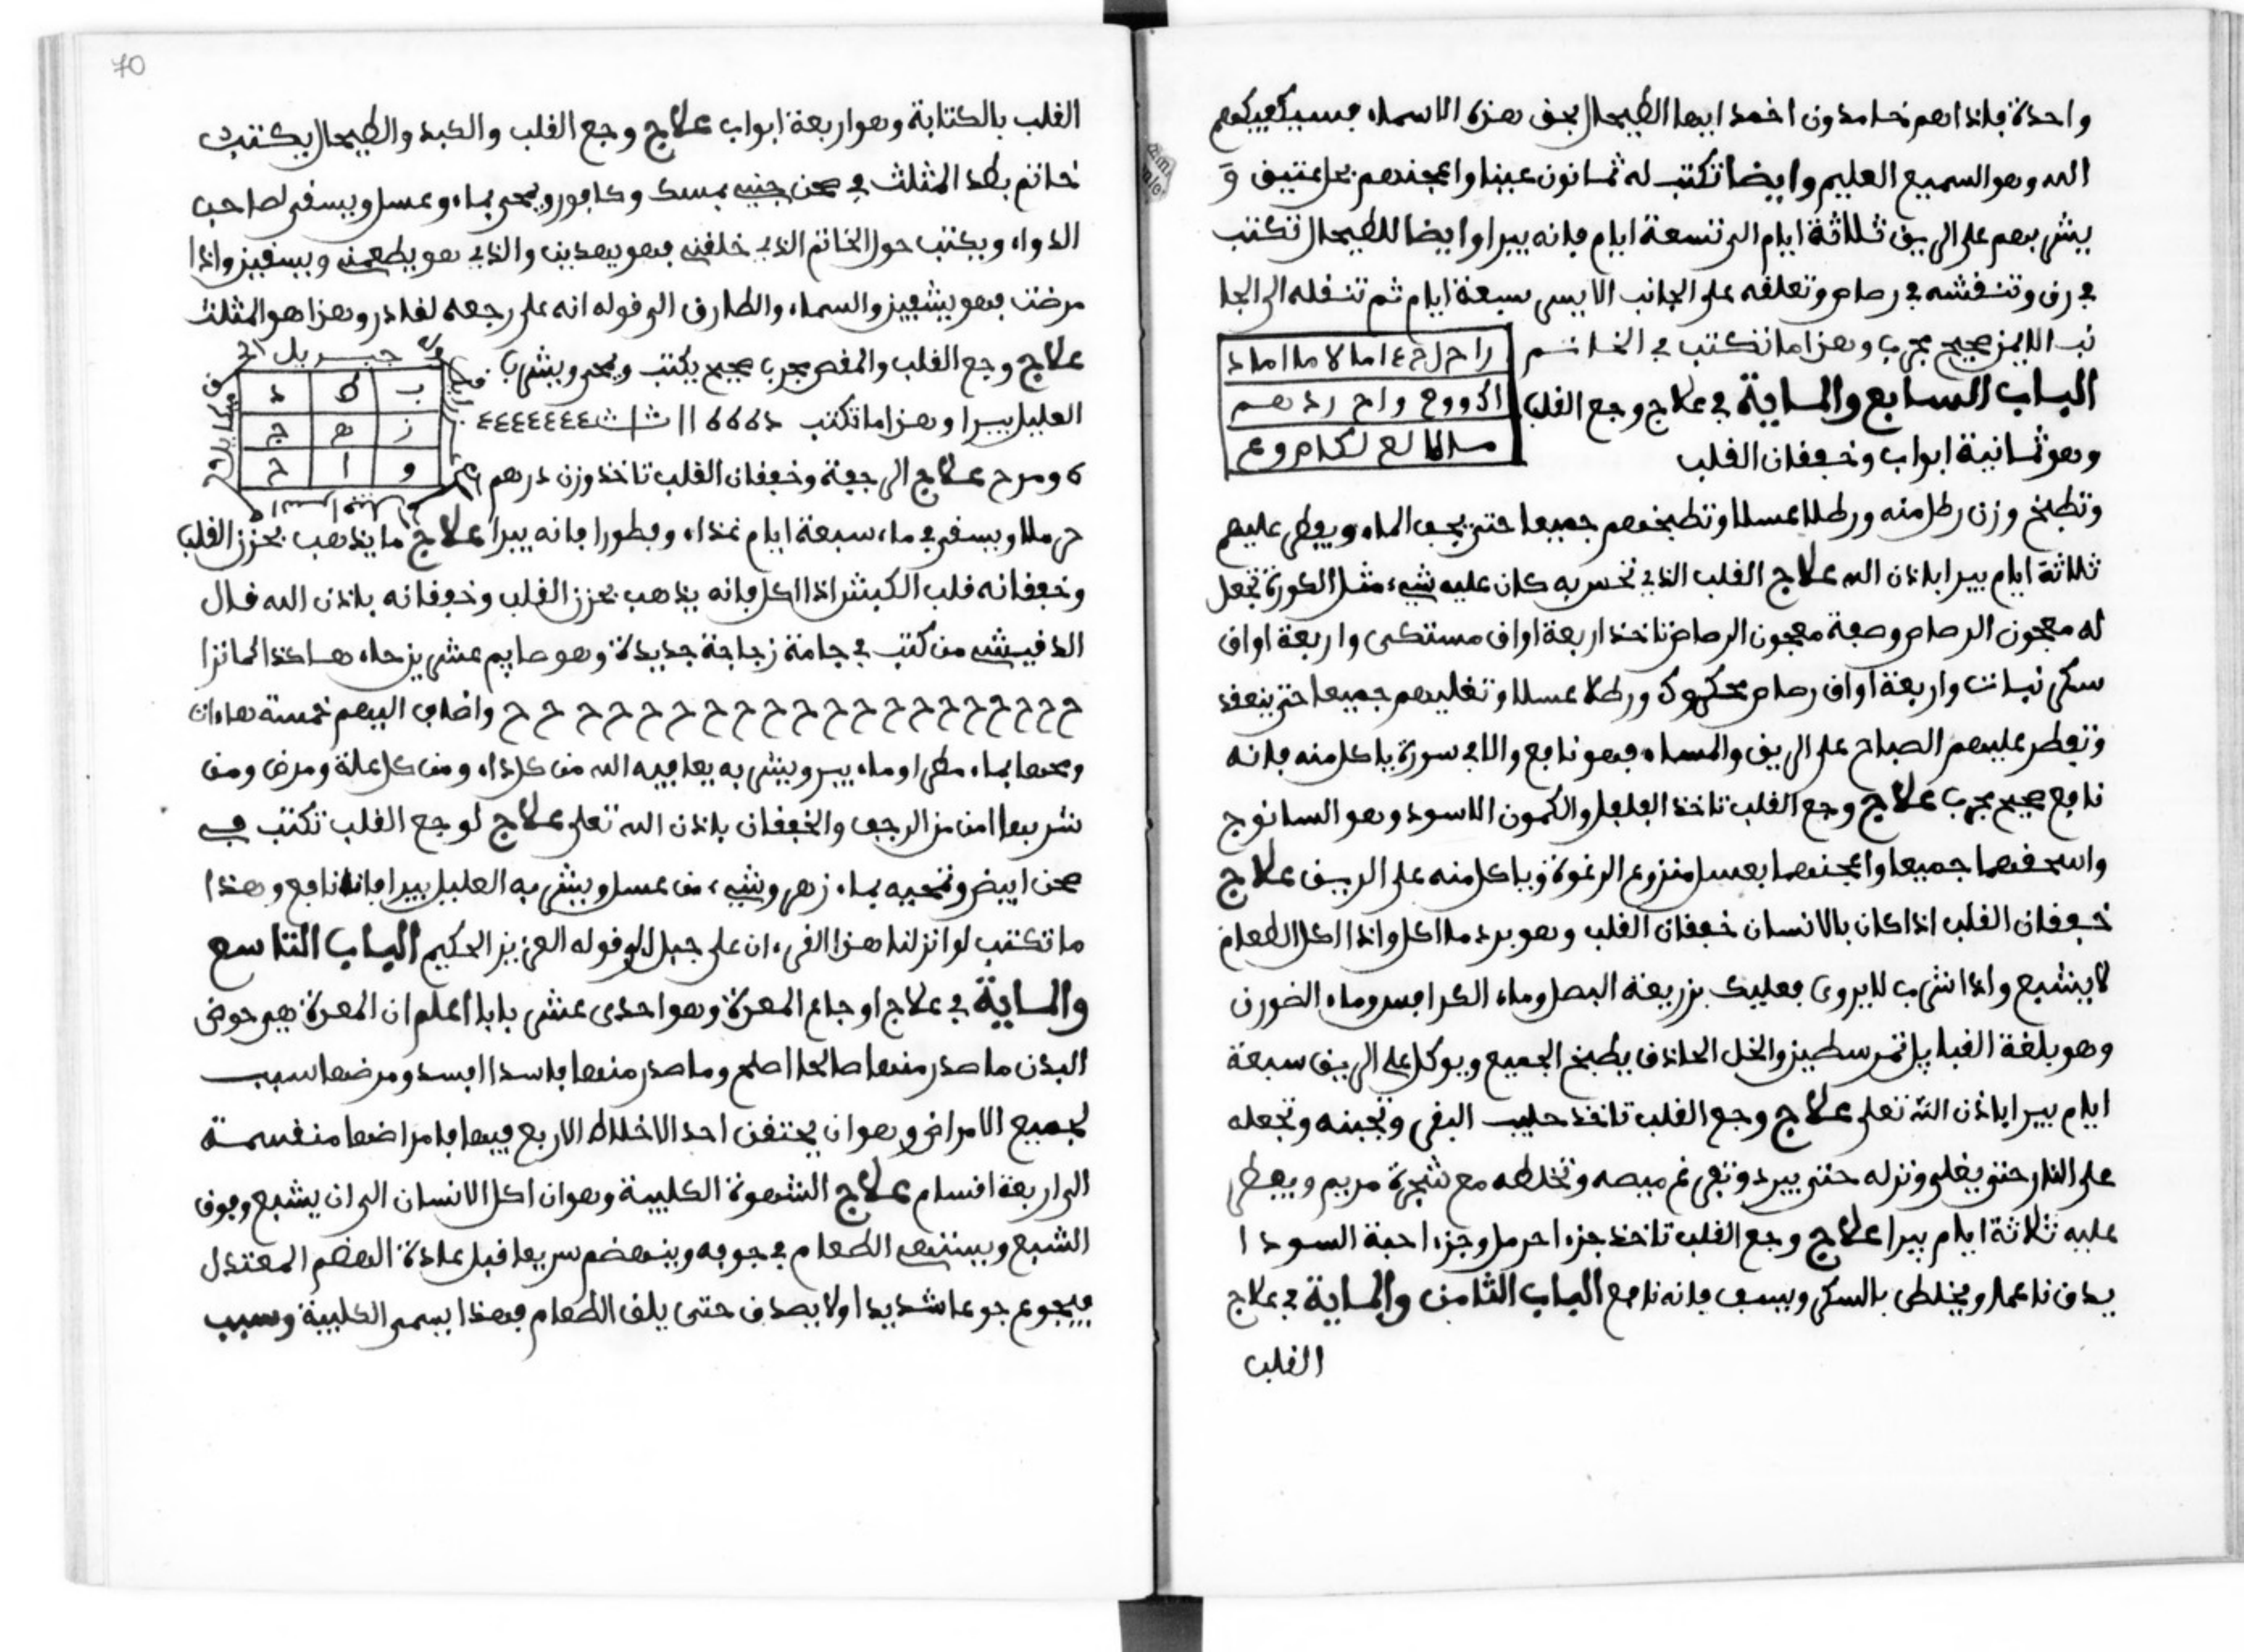 واحدة فاذاهم خامدون اخمد ايها الطيحال بحق هذه الاسماء فسيكفيكهم
الله وهو السميع العليم وايضا تكتب له ثمانون عينا واعجنهم بخل عتيق و
يشربهم على الريق ثلاثة ايام الى تسعة ايام فانه يبرا وايضا للطيحال تكتب
في رق وتنقشه في رصاص وتعلقه على الجانب الايسر سبعة ايام ثم تنقله الى الجا
نب الايمن صحيح مجرب وهذا ما تكتب في الخاتم
الباب السابع والماية في علاج وجع القلب
وهو ثمانية ابواب وخفقان القلب
وتطبخ وزن رطل منه ورطلا عسلا وتطبخهم جميعا حتى يجف الماء ويفطر عليهم
ثلاثة ايام يبرا باذن الله علاج القلب الذي تحس به كان عليه شيء مثل الكورة تجعل
له معجون الرصاص وصفة معجون الرصاص تاخذ اربعة اواق مستكى واربعة اواق
سكر نبات واربعة اواق رصاص محكوك ورطلا عسلا وتغليهم جميعا حتى ينعقد
وتفطر عليهم الصباح على الريق والمساء فهو نافع والا في سورة ياكل منه فانه
نافع صحيح مجرب علاج وجع القلب تاخذ الفلفل والكمون الاسود وهو السانوج
واسحقهما جميعا واعجنهما بعسل منزوع الرغوة وياكل منه على الريق علاج
خفقان القلب اذا كان بالانسان خفقان القلب وهو يرد ما اكل واذا اكل الطعام
لا يشبع واذا شرب لا يروى فعليك بزريعة البصل وماء الكرافس وماء الضورن
وهو بلغة القبايل تمرسطيز والخل الحاذق يطبخ الجميع ويوكل على الريق سبعة
ايام يبرا باذن الله تعلى علاج وجع القلب تاخذ حليب البقر وتجبنه وتجعله
على النار حتى يغلى ونزله حتى يبرد وتعرغم ميصه وتخلطه مع شجرة مريم ويفطر
عليه ثلاثة ايام يبرا علاج وجع القلب تاخذ جزء احرمل وجزء احبة السودا
يدق ناعما ويخلط بالسكر ويسف فانه نافع الباب الثامن والماية في علاج
القلب
70
القلب بالكتابة وهو اربعة ابواب علاج وجع القلب والكبد والطيحال يكتب
خاتم بطد المثلث في صحن جنبي بمسك وكافور ويمحى بماء وعسل ويسقى لصاحب
الدواء ويكتب حول الخاتم الذي خلقني فهو يهدين والذي هو يطعمني ويسقين واذا
مرضت فهو يشفين والسماء والطارق الى قوله انه على رجعه لقادر وهذا هو المثلث
علاج وجع القلب والمغص مجرب صحيح يكتب ويمحى ويشرب
العليل يبرا وهذا ما تكتب
ب ط د
ز ه ج
و ا ح
جبريل
ومرح علاج الرجفة وخفقان القلب تاخذ وزن درهم
حرملا ويسقى في ماء سبعة ايام غذاء وفطورا فانه يبرا علاج ما يذهب بحزز القلب
وخفقانه قلب الكبش اذا اكل فانه يذهب بحزز القلب وخفقانه باذن الله قال
الدفيشي من كتب في جامة زجاجة جديدة وهو صايم عشرين حاء هاكذا كما ترا
ح ح ح ح ح ح ح ح ح ح ح ح ح ح ح ح ح ح ح ح واضاف اليهم خمسة هاءات
ومحها بماء مطر او ماء بير ويشربه يعافيه الله من كل داء ومن كل علة ومرض ومن
شربها امن من الرجف والخفقان باذن الله تعلى علاج لوجع القلب تكتب في
صحن ابيض وتمحيه بماء زهر وشيء من عسل ويشربه العليل يبرا فانه نافع وهذا
ما تكتب لو انزلنا هذا القرءان على جبل الى قوله العزيز الحكيم الباب التاسع
والماية في علاج اوجاع المعرة وهو احدى عشر بابا اعلم ان المعرة هي حوض
البدن ما صدر منها صالحا اصلح وما صدر منها فاسدا افسد ومرضها سبب
لجميع الامراض وهو ان يحتقن احد الاخلاط الاربع فيها فامراضها منقسمة
الى اربعة اقسام علاج الشهوة الكلبية وهو ان اكل الانسان الى ان يشبع وفوق
الشبع ويستنهي الطعام في جوفه وينهضم سريعا قبل عادة الهضم المعتدل
فيجوع جوعا شديدا ولا يصدق حتى يلق الطعام فهذا يسمى الكلبية وسبب